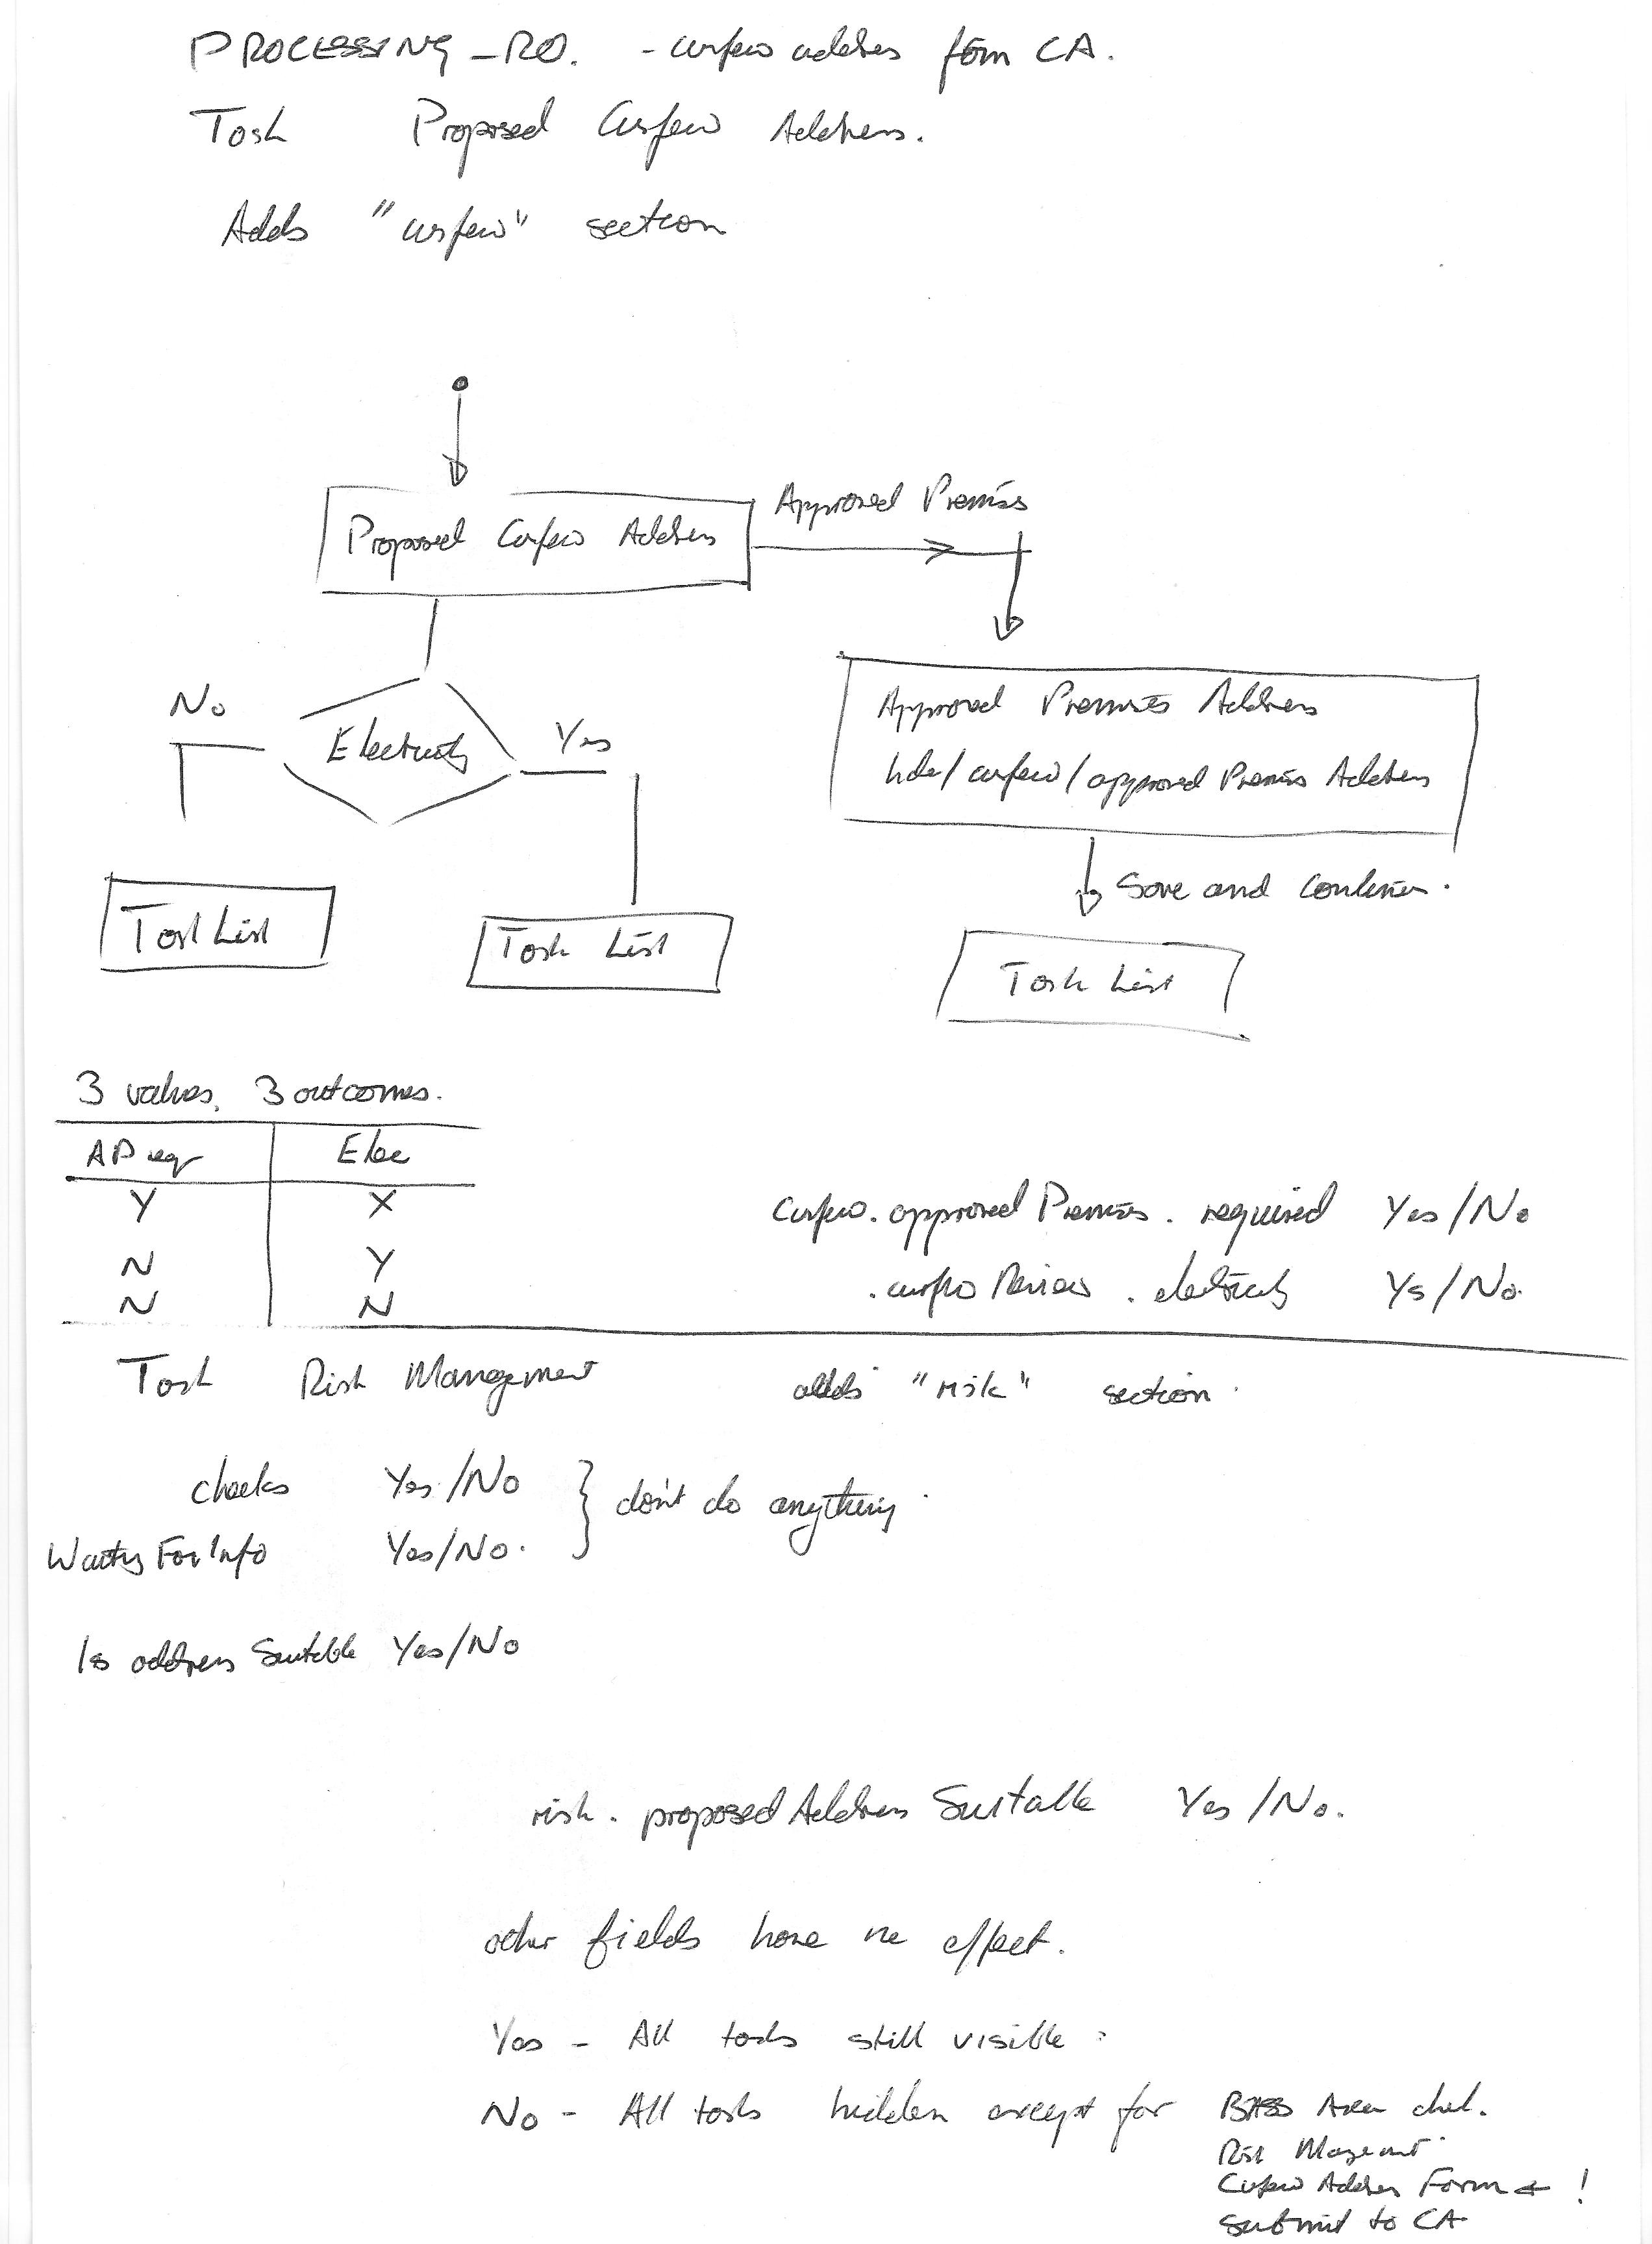 PROCESSING_RO. - curfew address form CA.
Task Proposed Curfew Address.
Adds "curfew" section
Approved Premises
Proposed Curfew Address
No
Electricity
Yes
Approved Premises Address
hdc/curfew/approved Premises Address
Save and Continue.
Task List
Task List
Task List
3 values, 3 outcomes.
AP req Elec
Y X
N Y
N N
curfew.approved Premises.required Yes/No
.curfew Review.electricity Yes/No.
Task Risk Management adds "risk" section.
checks Yes/No
Waiting For Info Yes/No.
don't do anything.
Is address Suitable Yes/No
risk.proposed Address Suitable Yes/No.
other fields have no effect.
Yes - All tasks still visible.
No - All tasks hidden except for BASS Area check.
Risk Management.
Curfew Address Form ← !
Submit to CA